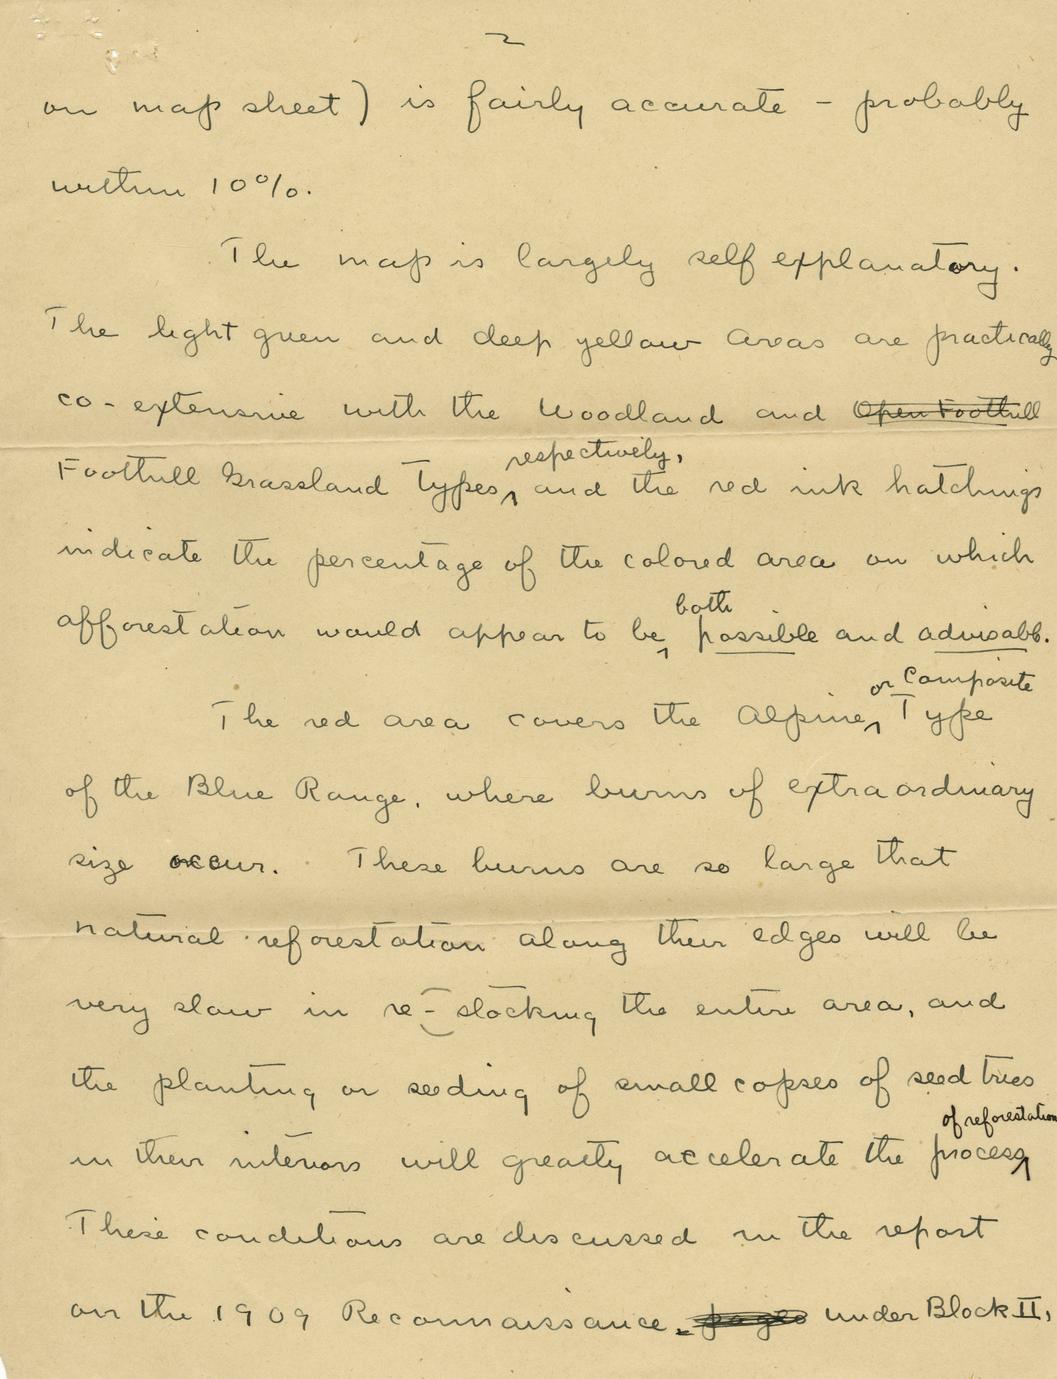 2
on map sheet) is fairly accurate - probably
within 10%.
The map is largely self explanatory.
The light green and deep yellow areas are practically
co-extensive with the Woodland and Open Foothill
respectively,
Foothill Grassland types, and the red ink hatchings
indicate the percentage of the colored area on which
both
afforestation would appear to be possible and advisable.
or Composite
The red area covers the Alpine Type
of the Blue Range, where burns of extraordinary
size occur. These burns are so large that
natural reforestation along their edges will be
very slow in re-stocking the entire area, and
the planting or seeding of small copses of seed trees
of reforestation
in their interiors will greatly accelerate the process
These conditions are discussed in the report
on the 1909 Reconnaissance, pages under Block II,